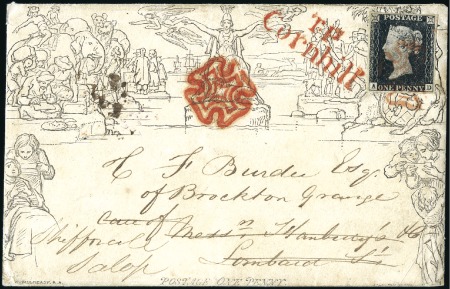 T.P
Cornhill
POSTAGE
A ONE PENNY D
H F Burdee Esq.
of Brockton Grange
care of Messrs Hanbury's & Co
Shiffnal Lombard St
Salop
POSTAGE ONE PENNY